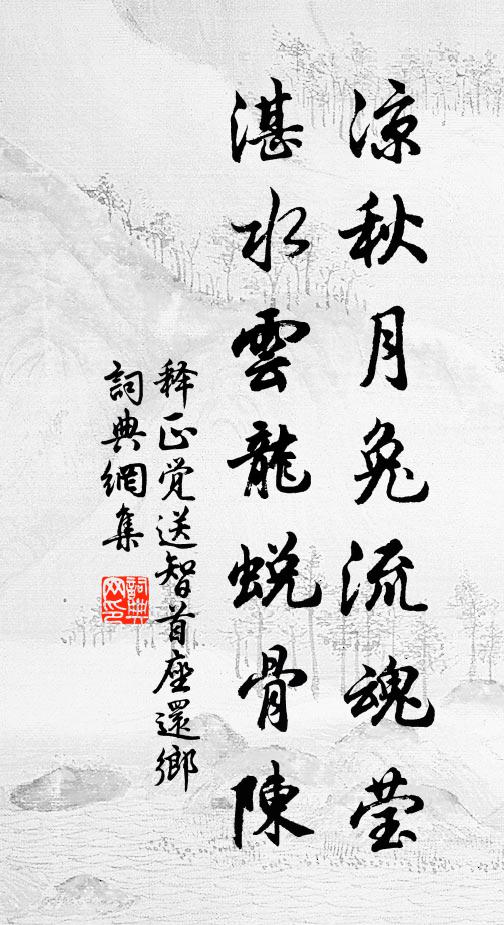 凉秋月兔流魂莹
湛水雲龍蜕骨陳
释正觉送智首座還鄉
詞典網集